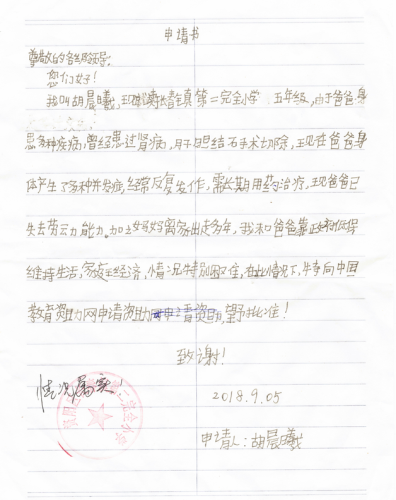 申请书
尊敬的各级领导:
您们好!
我叫胡晨曦,现就读长 镇第二完全小学 五年级,由于爸爸身
患多种疾病,曾经患过肾病,胆结石手术切除,现在爸爸身
体产生了多种并发症,经常反复发作,需长期用药治疗,现爸爸已
失去劳动力能力。加上妈妈离家出走多年,我和爸爸靠政府低保
维持生活,家庭经济,情况特别困难,在此情况下,特向中国
教育资助网申请资助 望批准!
致谢!
情况属实!
2018.9.05
申请人:胡晨曦
第二完全小学